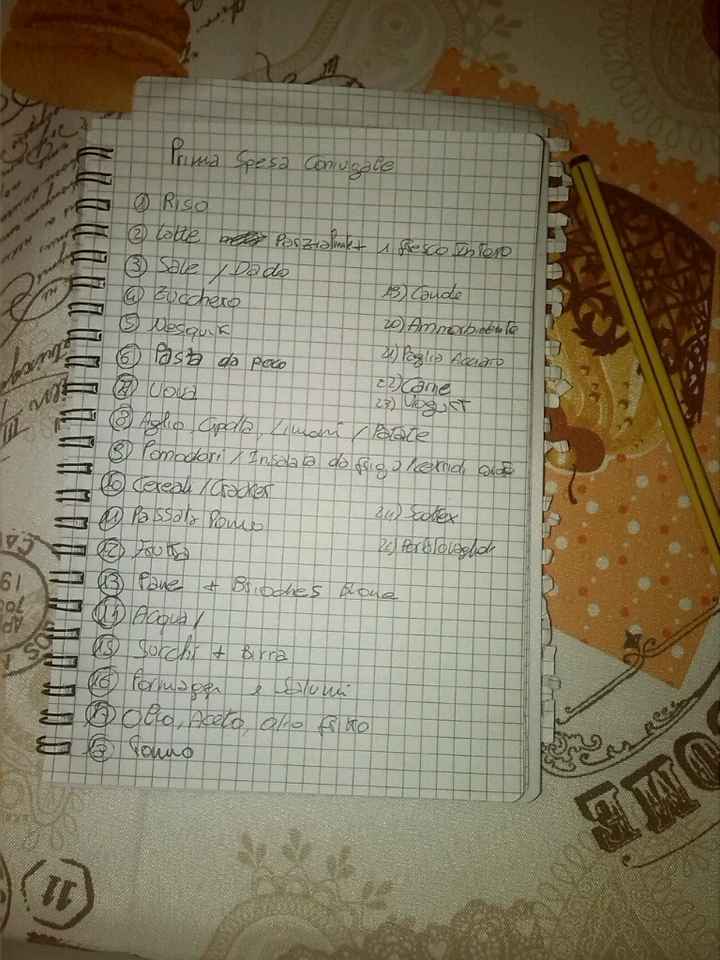 Prima Spesa Coniugale
① Riso
② Latte Parzialmet + 1 fresco Intero
③ Sale / Dado
④ Zucchero
⑤ Nesquik
⑥ Pasta da poco
⑦ Uova
⑧ Aglio, Cipolla, Limoni / Patate
⑨ Pomodori / Insalata da frigo /
⑩ Cereali / Cracker
⑪ Passata Pomo
⑫ Frutta
⑬ Pane + Brioches
⑭ Acqua /
⑮ Succhi + Birra
⑯ Formaggi e Salumi
⑰ Olio, Aceto, Olio fritto
⑱ Tonno
19)
20) Ammorbidente
21) Paglia Acciaio
22) Carne
23) Yogurt
24) Scottex
25)
11